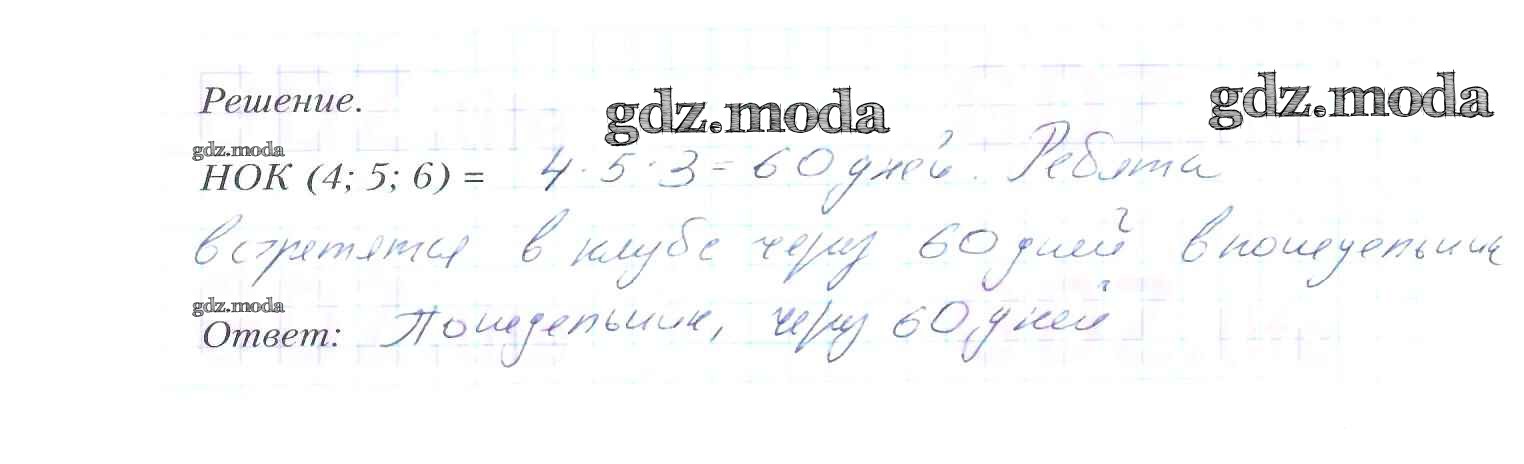 Решение.
gdz.moda gdz.moda
gdz.moda
НОК (4; 5; 6) = 4 · 5 · 3 = 60 дней. Ребята
встретятся в клубе через 60 дней в понедельник
gdz.moda
Ответ: Понедельник, через 60 дней